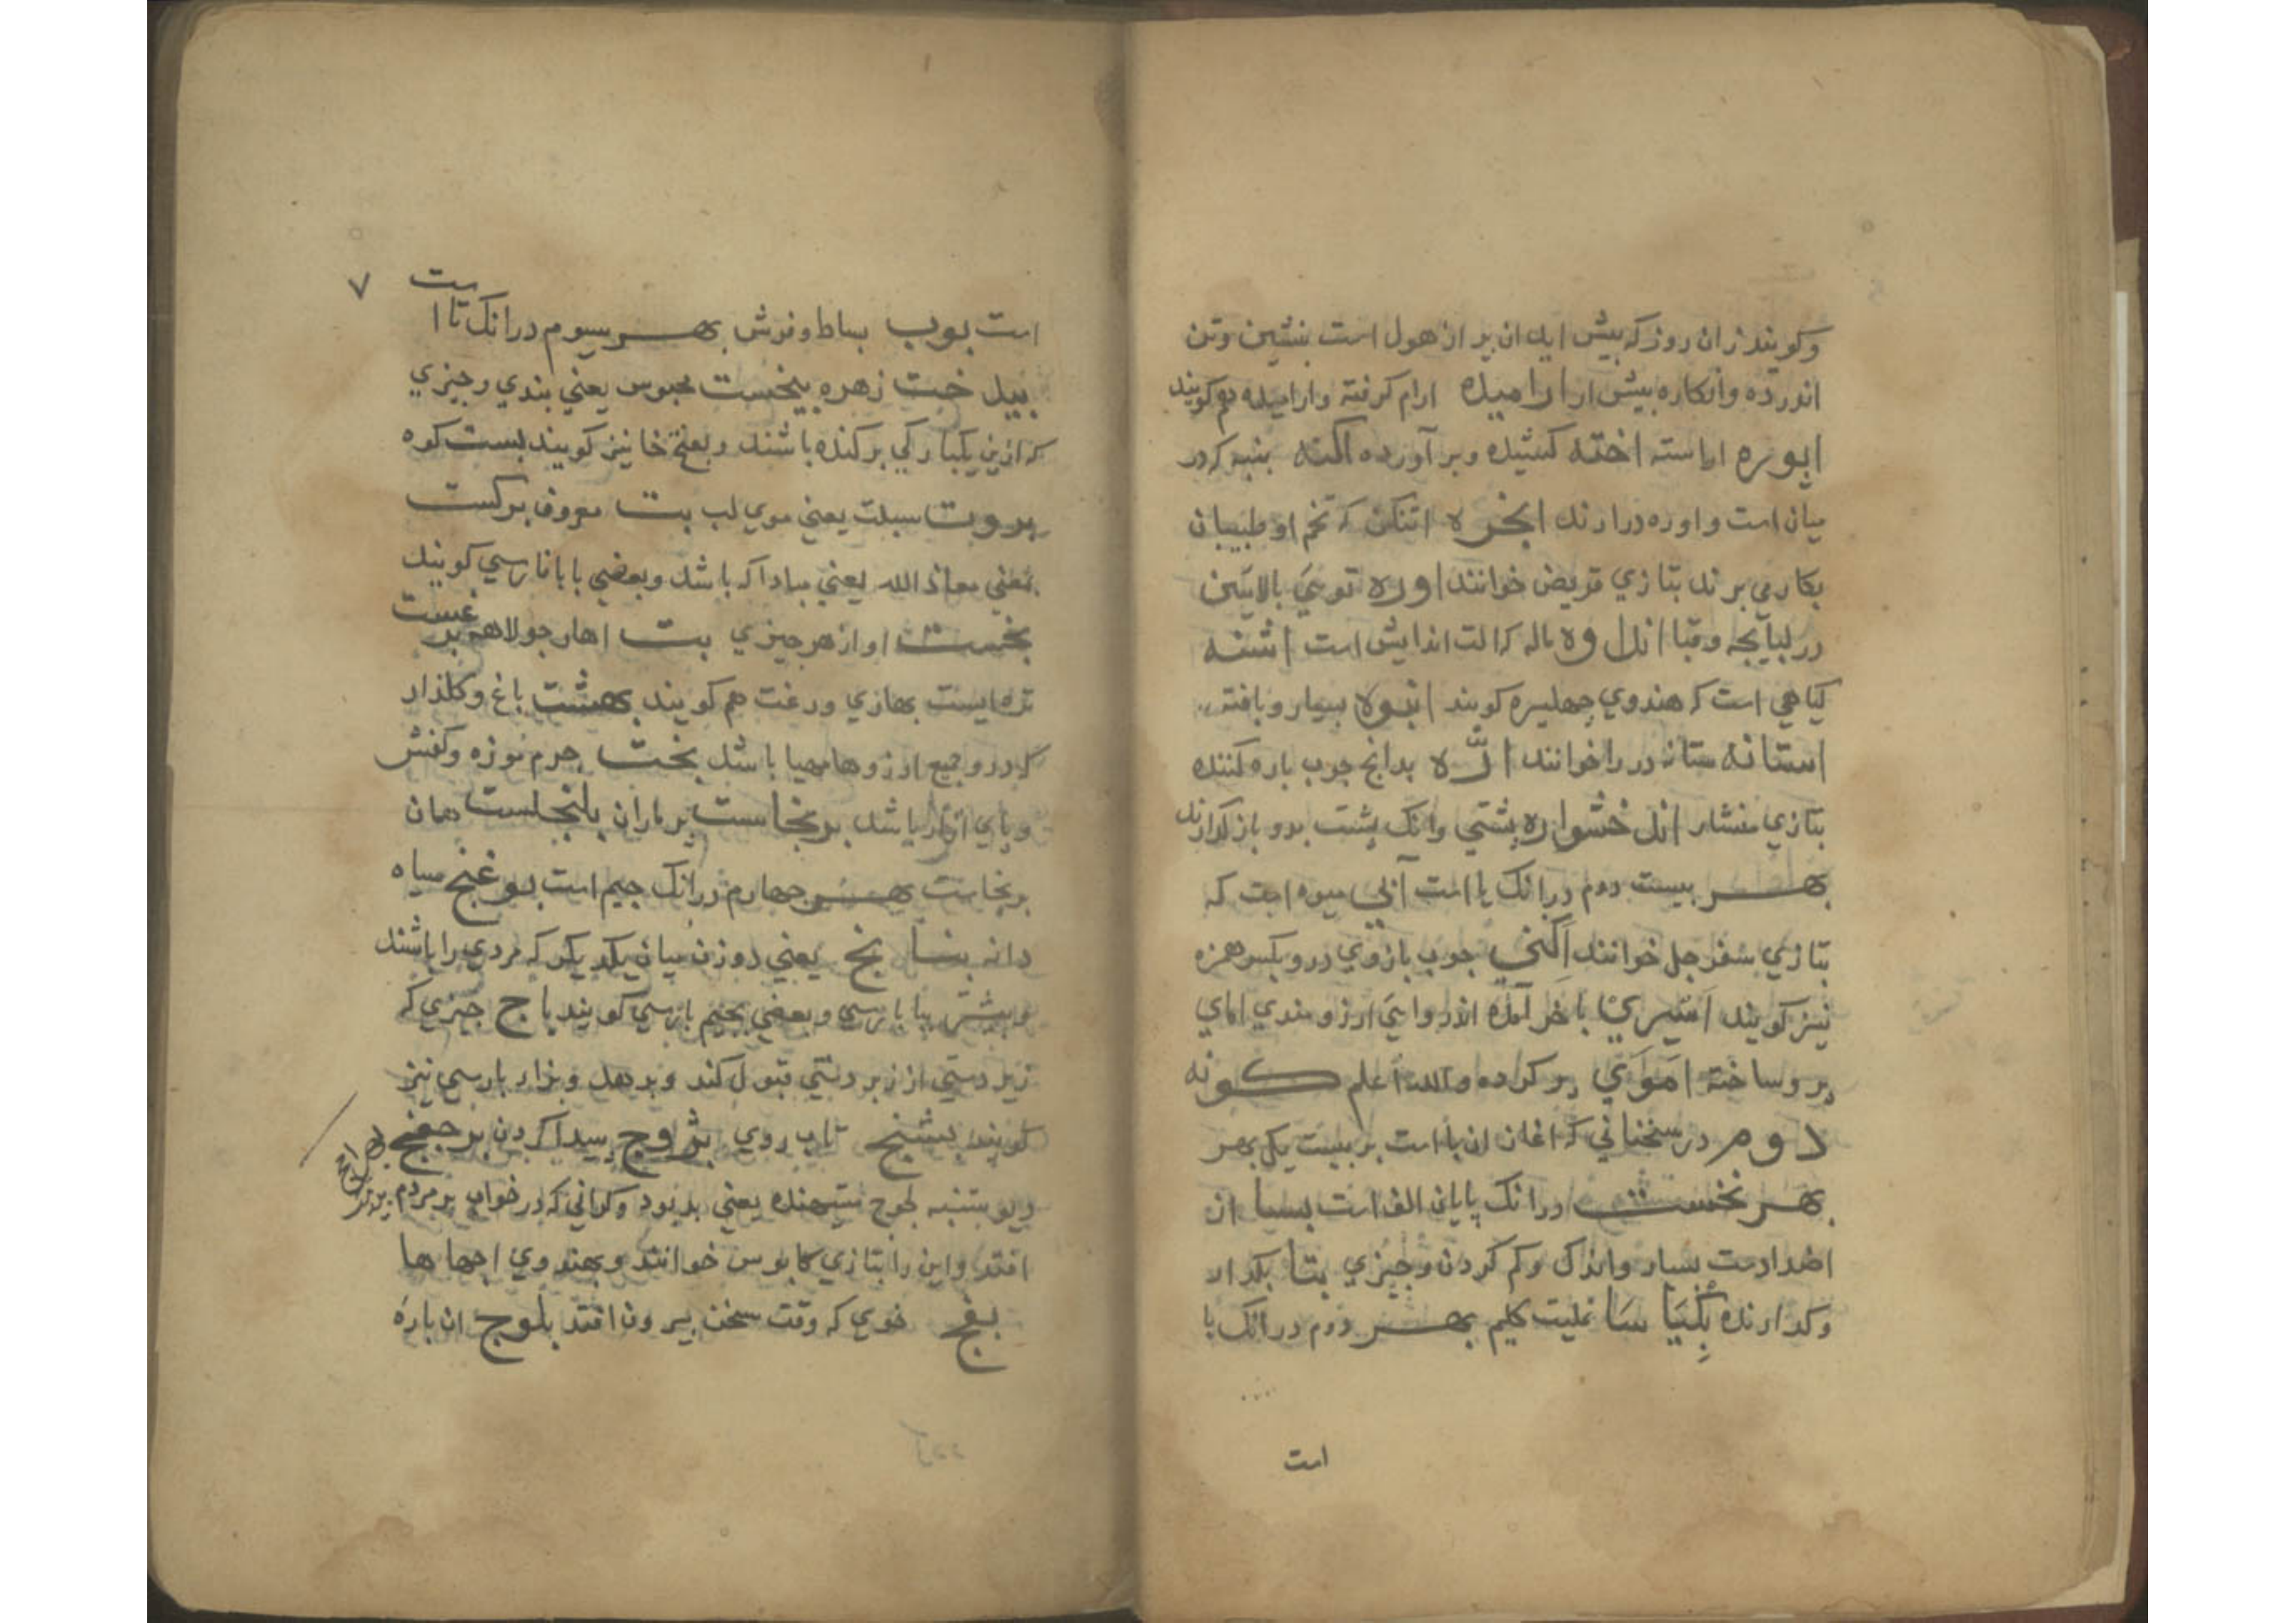 وکویند زان روز که پیش ایدان بر از هول است بنشین وتن
اندر ده وانکاره پیش ار ارامیده ارام کرفته وارامیده هم کویند
اراسته اخته کشیده وبر آورده اکنه بنبه که در
میان است واوره در ارند انجره اتنکن که تخم او طبیبان
بکار می برند بتازی قریض خوانند اوره توی بالایین
در لبایچه وقبا اندوه ماله که الت اندایش است اشنه
کیاهی است که هندوی چهلیره کویند انبوه بسیار وبافته
استانه ستانه در را خوانند اره بدانج چوب باره کنند
بتازی منشار اندخشواره بشتی وانک بشت بدو باز کدارند
بهر بیست دوم درانک یا است آبی میوه است که
بتازی سفرجل خوانند اکنی چوب بازوی در وبکسر همزه
نیز کویند اسپری باخر آمده اندروایی ارزومندی امای
بر وساخته اموی بر کرده والله اعلم کونه
دوم در سخنانی که اغاز ان با است بر بیست یک بهر
بهر نخست درانک پایان الف است بسا از
اضدادست بسیار واندک وکم کردن وچیزی بتا بکدار
وکدارنده بکیاسا غلیت کلیم بهر دوم درانک با
است
۷
است بوب بساط وفرش بهر سیوم درانک تا است
بیلخت زهره بیخست محبوس یعنی بندی وچیزی
که از بن یکبارکی برکنده باشند وبعضی خا نیز کویند بست کوه
بروت سبلت یعنی موی لب بت معروف برکست
بمعنی معاذ الله یعنی مبادا که باشد وبعضی با بابارسی کویند
بخست اواز هر چیزی بت اهار جولاهه برغست
تره ایست بهاری ورغت هم کویند بهشت باغ وکلزار
که درو جمیع ارزوها مهیا باشد بخت چرم موزه وکفش
وبای افزار باشد برنجاست بر ماران بلنجاست همان
برنجاست بهر چهارم درانک جیم است بوغنج سیاه
دانه بنانج یعنی دو زن میان یکدیکر که مردی را باشند
وبیشتر ببا بارسی وبعضی بجیم بارسی کویند باج چیزی که
زیر دستی از زبر دستی قبول کند وبدهد وبزاء بارسی نیز
کویند بشنج تاب روی بژوج پیدا کردن برخفج
وبو بتنبه لجوج ستیهنده یعنی بد بود وکرانی که در خواب بر مردم
افتد واین را بتازی کابوس خوانند وبهندوی اچهاها
بفج خوی که وقت سخن بیرون افتد بلوج ان باره